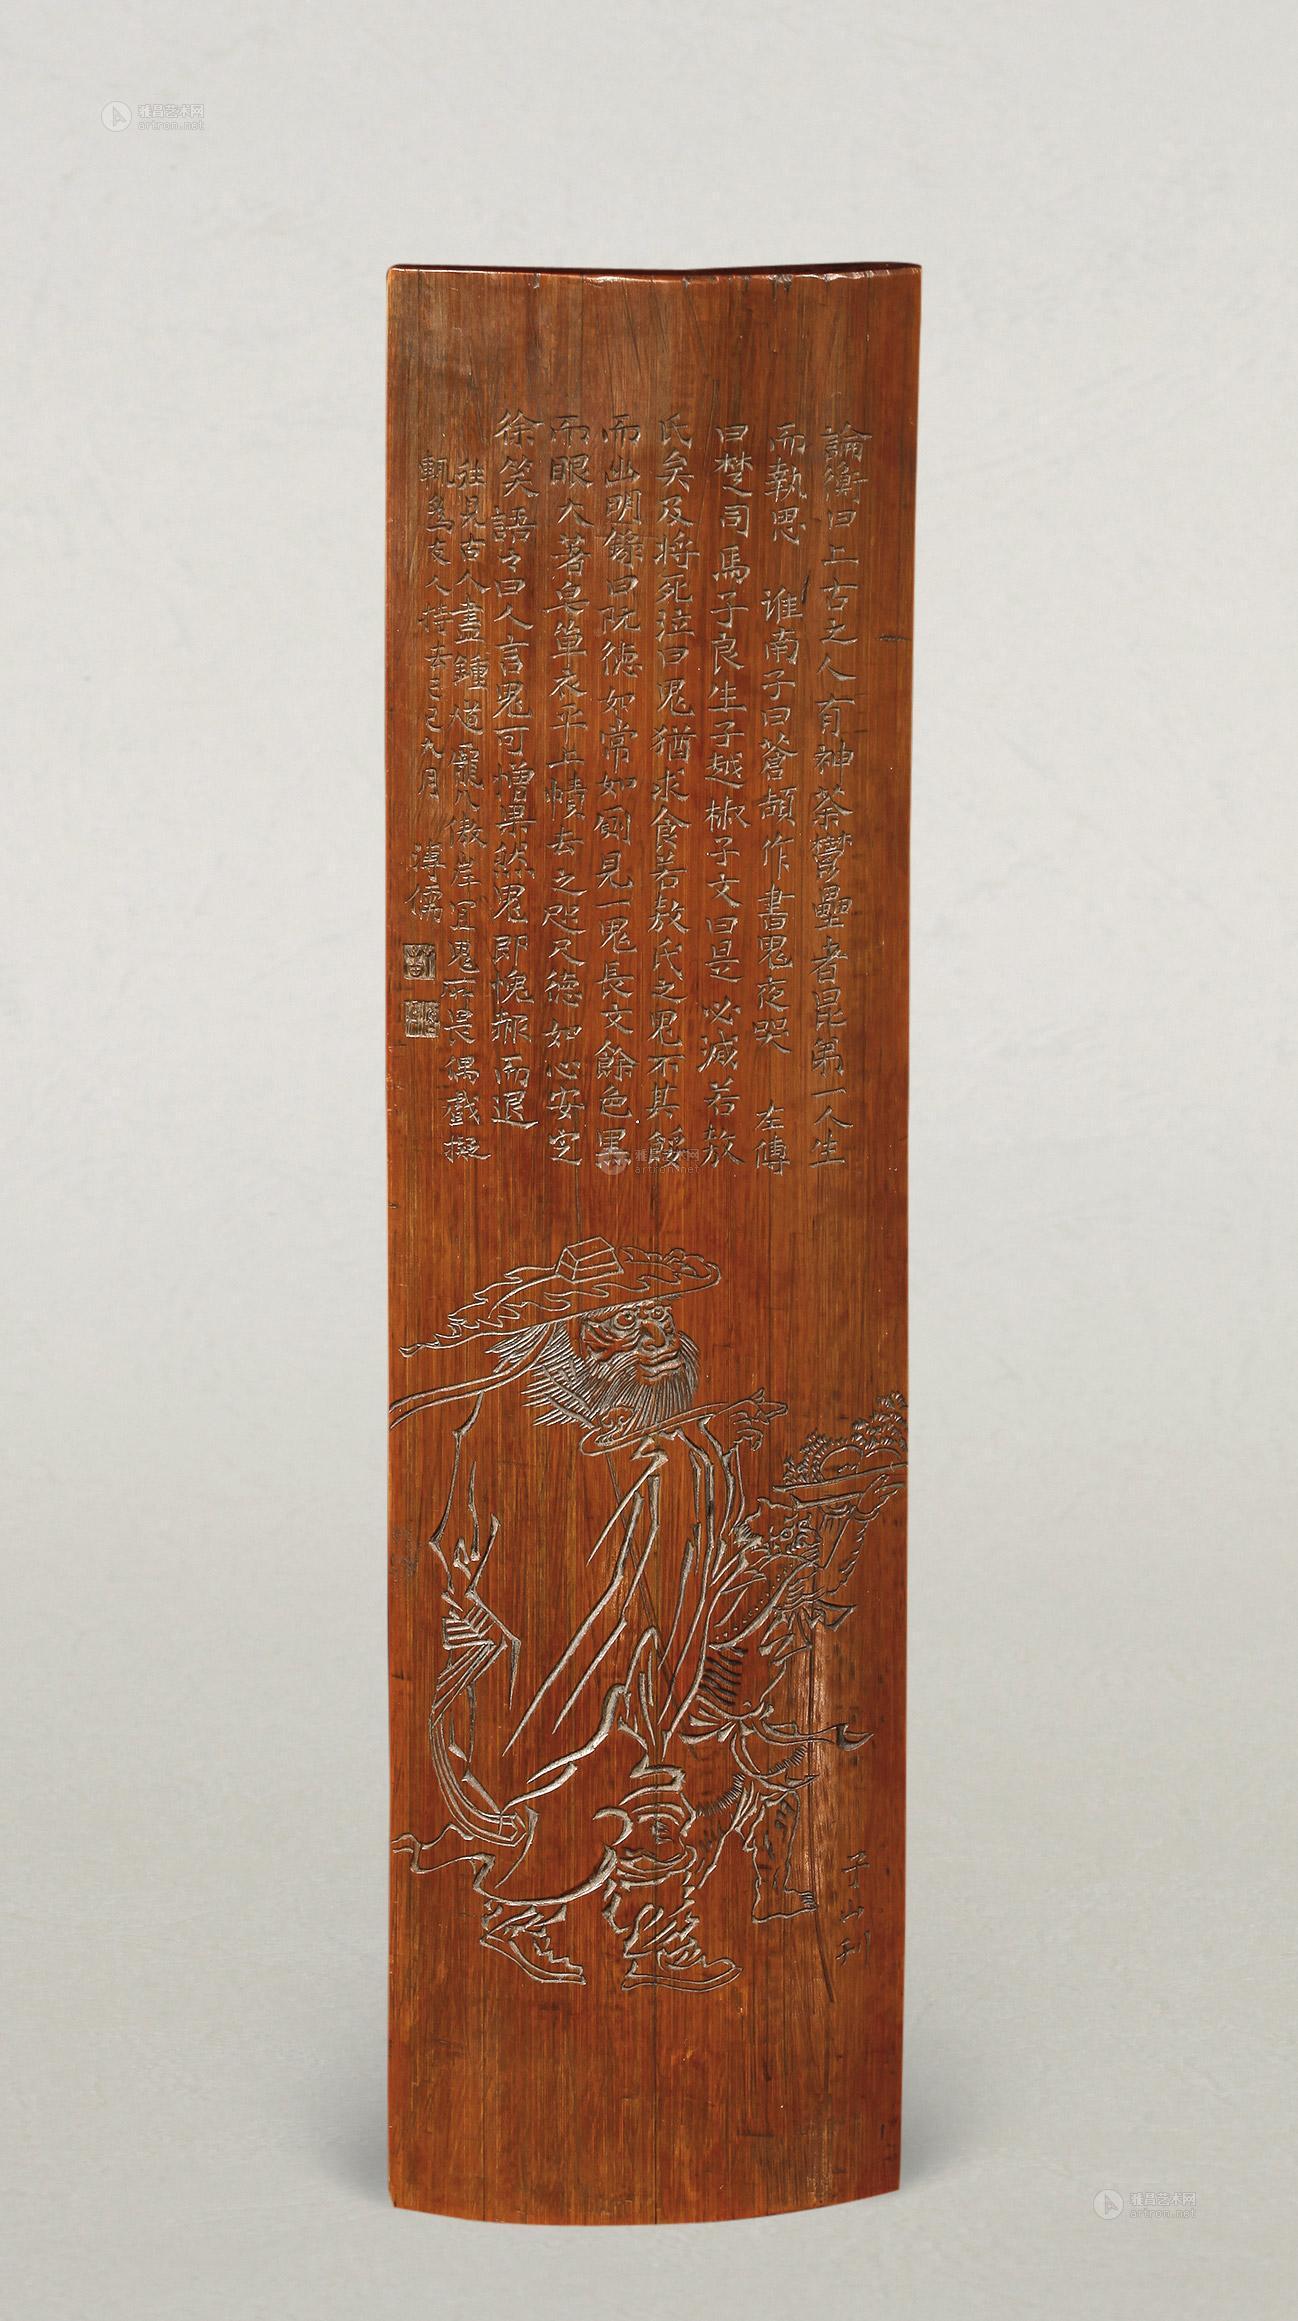 論衡曰上古之人有神荼鬱壘者昆弟二人生
而執思 淮南子曰蒼頡作書鬼夜哭 左傳
曰楚司馬子良生子越椒子文曰是必滅若敖
氏矣及將死泣曰鬼猶求食若敖氏之鬼不其餒
而幽明錄曰阮德如常如廁見一鬼長丈餘色黑
而眼大著皂單衣平上幘去之咫尺德如心安定
徐笑語之曰人言鬼可憎果然鬼即愧赧而退
往見古人畫鍾馗龐八傲岸宜鬼所畏偶戲擬
輒為友人持去己巳九月 溥儒
子山刊
雅昌艺术网
artron.net
雅昌艺术网
artron.net
雅昌艺术网
artron.net